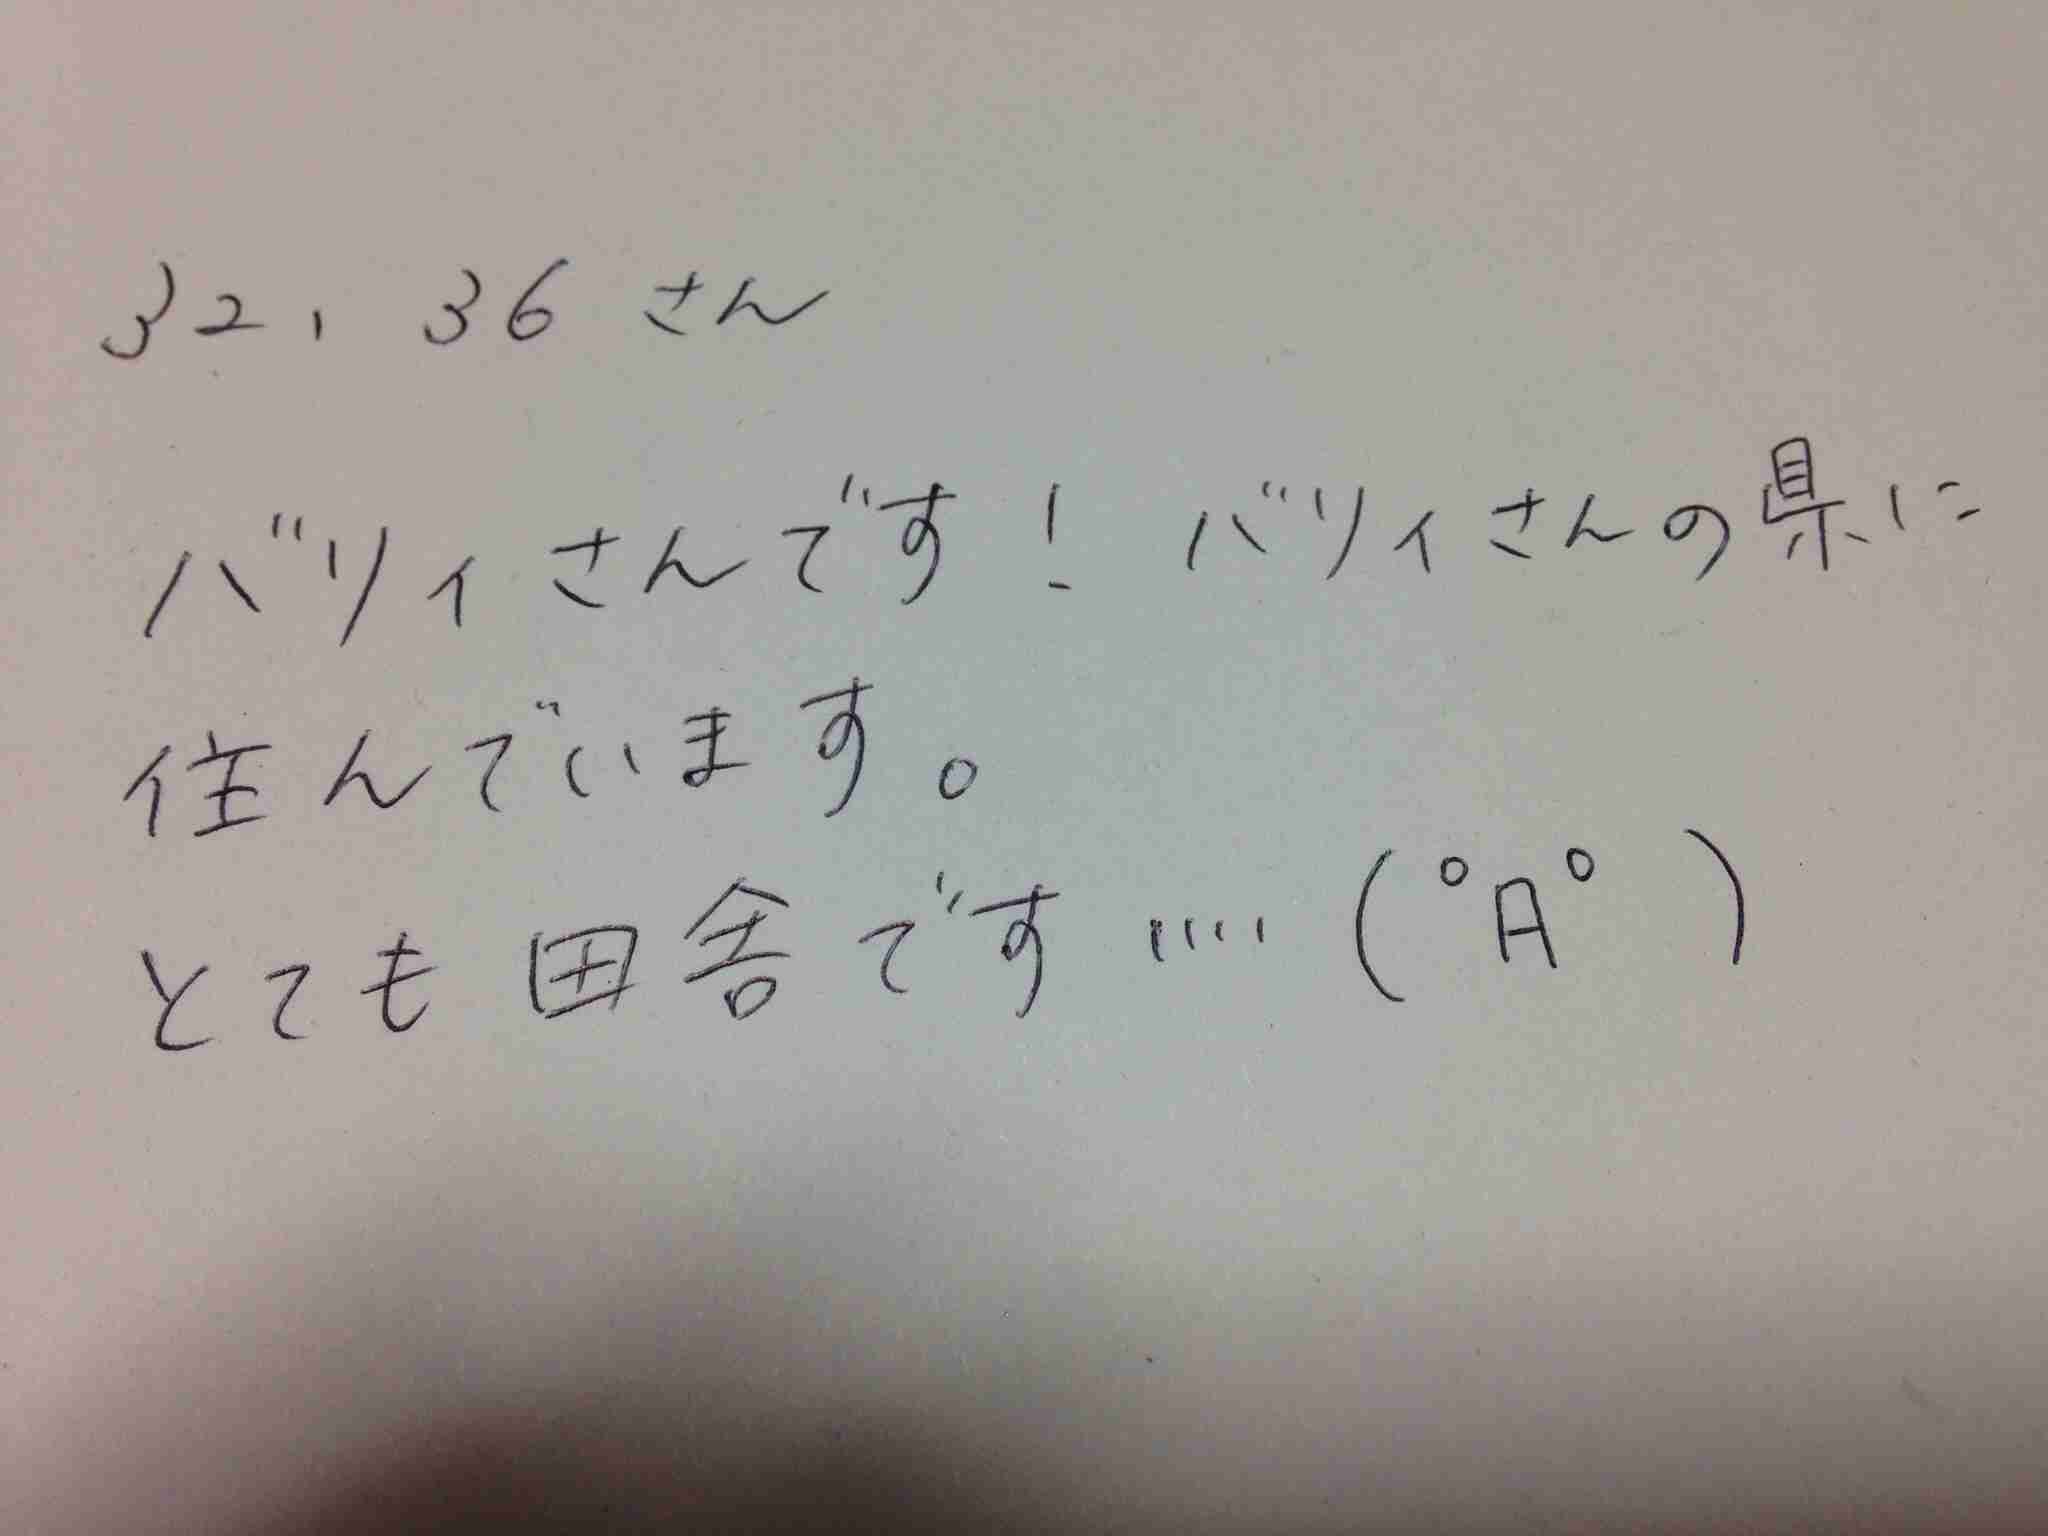 32、36さん
バリィさんです！バリィさんの県に
住んでいます。
とても田舎です‥‥(°A°)